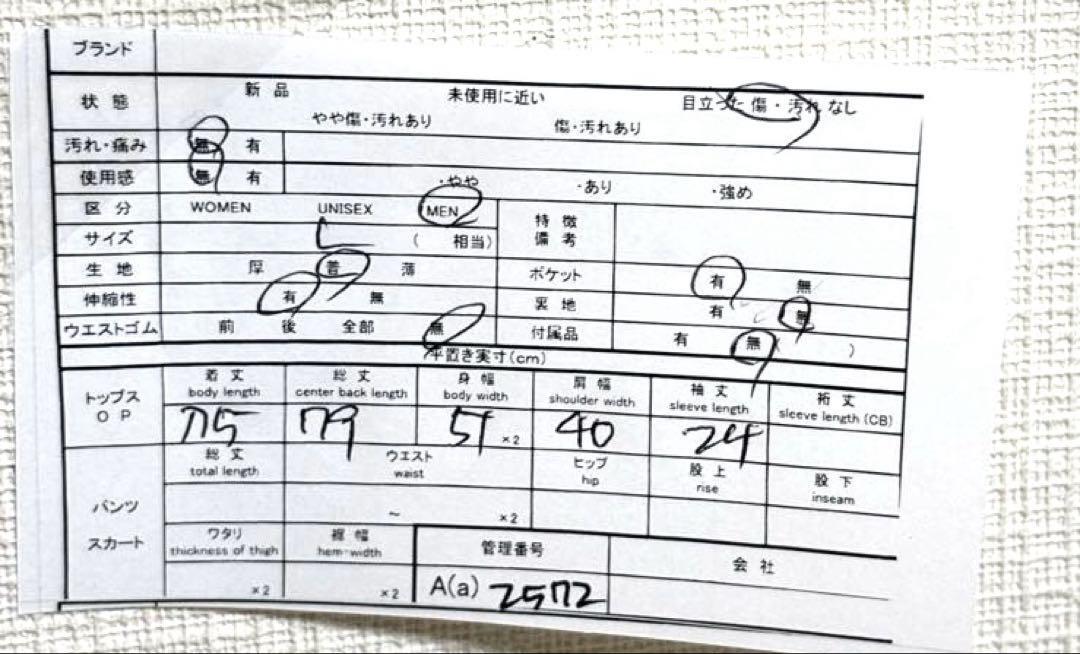 ブランド
状態 新品 未使用に近い 目立った傷・汚れなし
やや傷・汚れあり 傷・汚れあり
汚れ・痛み 無 有
使用感 無 有 ・やや ・あり ・強め
区分 WOMEN UNISEX MEN 特徴 備考
サイズ L ( 相当)
生地 厚 普 薄 ポケット 有 無
伸縮性 有 無 裏地 有 無
ウエストゴム 前 後 全部 無 付属品 有 無( )
平置き実寸(cm)
トップス OP 着丈 総丈 身幅 肩幅 袖丈 裄丈
body length center back length body width shoulder width sleeve length sleeve length (CB)
75 79 51 ×2 40 24
パンツ スカート 総丈 ウエスト ヒップ 股上 股下
total length waist hip rise inseam
~ ×2
ワタリ 裾幅 管理番号 会社
thickness of thigh hem-width
×2 ×2 A(a) 2572